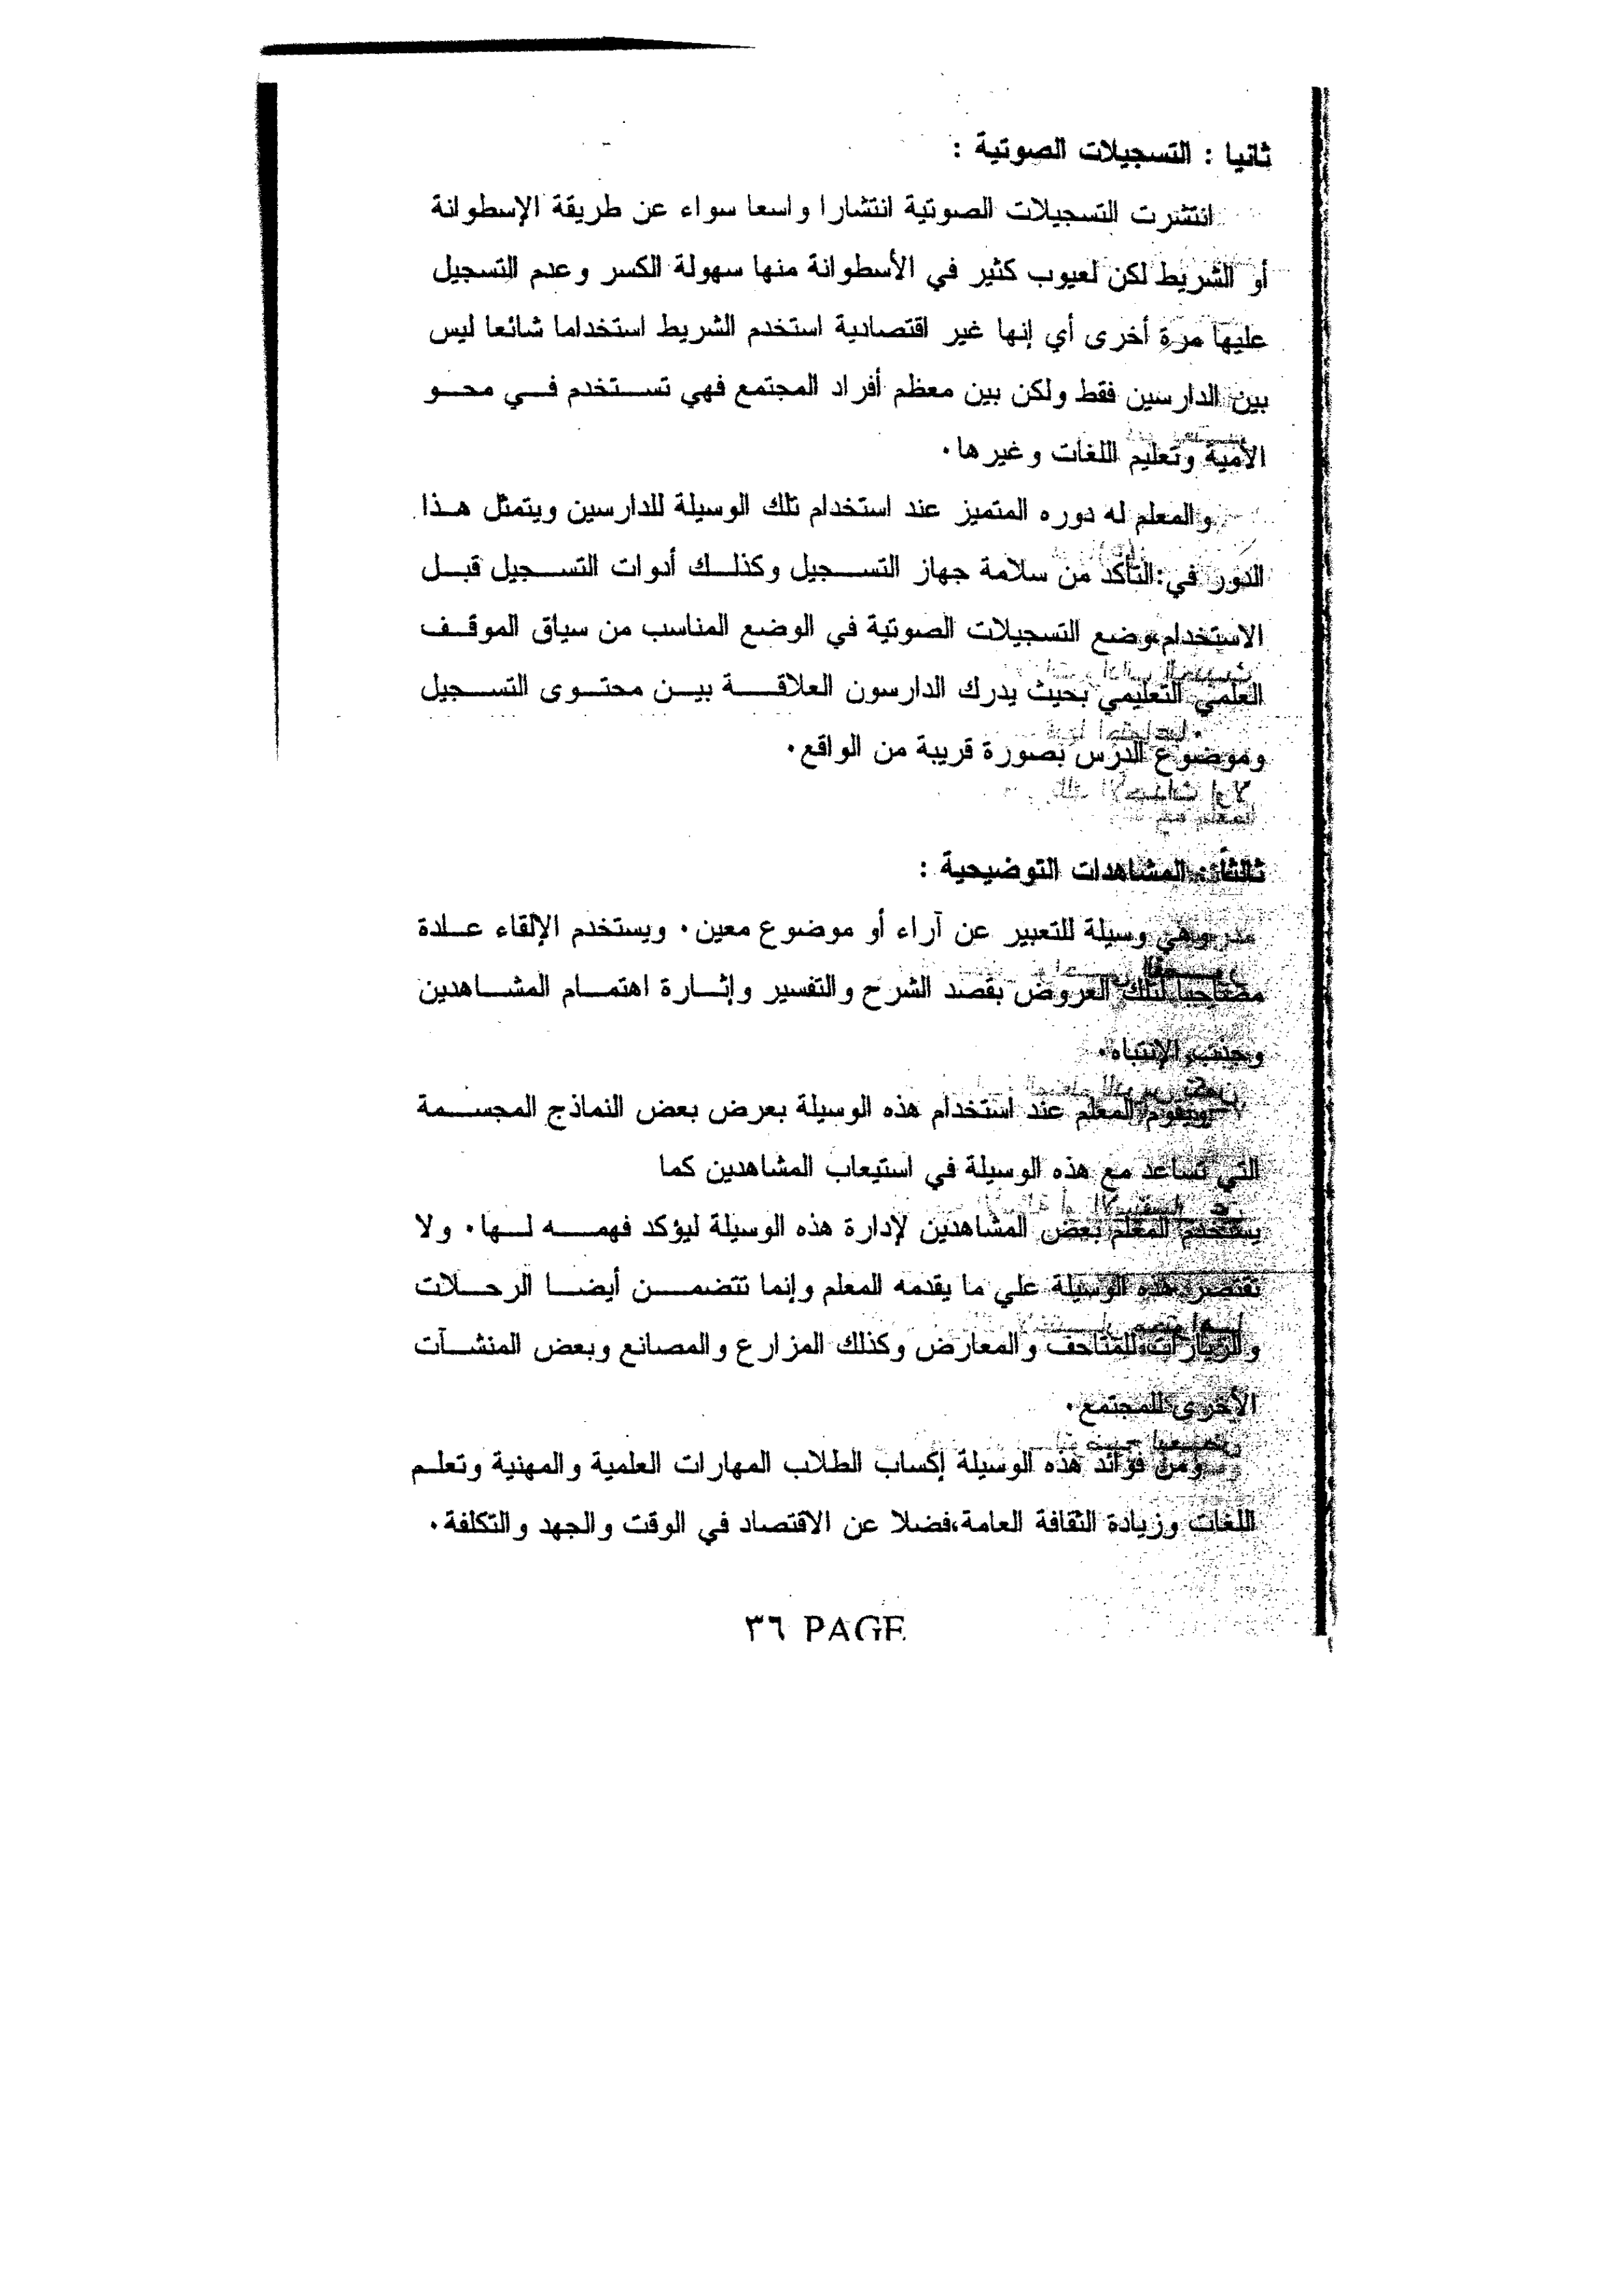 ثانيا : التسجيلات الصوتية :
انتشرت التسجيلات الصوتية انتشارا واسعا سواء عن طريقة الإسطوانة
أو الشريط لكن لعيوب كثير في الأسطوانة منها سهولة الكسر وعدم التسجيل
عليها مرة أخرى أي إنها غير اقتصادية استخدم الشريط استخداما شائعا ليس
بين الدارسين فقط ولكن بين معظم أفراد المجتمع فهي تستخدم في محو
الأمية وتعليم اللغات وغيرها.
والمعلم له دوره المتميز عند استخدام تلك الوسيلة للدارسين ويتمثل هذا
الدور في:التأكد من سلامة جهاز التسجيل وكذلك أدوات التسجيل قبل
الاستخدام،وضع التسجيلات الصوتية في الوضع المناسب من سياق الموقف
العلمي التعليمي بحيث يدرك الدارسون العلاقة بين محتوى التسجيل
وموضوع الدرس بصورة قريبة من الواقع.
ثالثاً : المشاهدات التوضيحية :
وهي وسيلة للتعبير عن آراء أو موضوع معين. ويستخدم الإلقاء عادة
مصاحبا لتلك العروض بقصد الشرح والتفسير وإثارة اهتمام المشاهدين
وجذب الإنتباه.
ويقوم المعلم عند استخدام هذه الوسيلة بعرض بعض النماذج المجسمة
التي تساعد مع هذه الوسيلة في استيعاب المشاهدين كما
يستخدم المعلم بعض المشاهدين لإدارة هذه الوسيلة ليؤكد فهمه لها. ولا
تقتصر هذه الوسيلة علي ما يقدمه المعلم وإنما تتضمن أيضا الرحلات
والزيارات للمتاحف والمعارض وكذلك المزارع والمصانع وبعض المنشآت
الأخرى للمجتمع.
ومن فوائد هذه الوسيلة إكساب الطلاب المهارات العلمية والمهنية وتعلم
اللغات وزيادة الثقافة العامة،فضلا عن الاقتصاد في الوقت والجهد والتكلفة.
٣٦ PAGE